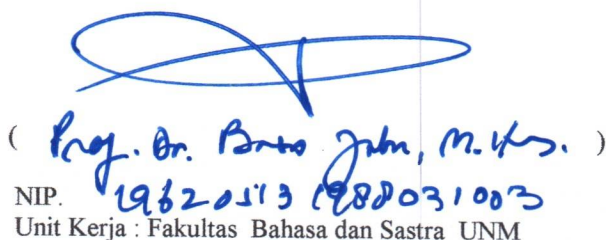 ( Prof. Dr. Baso Jabu, M.Hum. )
NIP. 19620513 198803 1 003
Unit Kerja : Fakultas Bahasa dan Sastra UNM